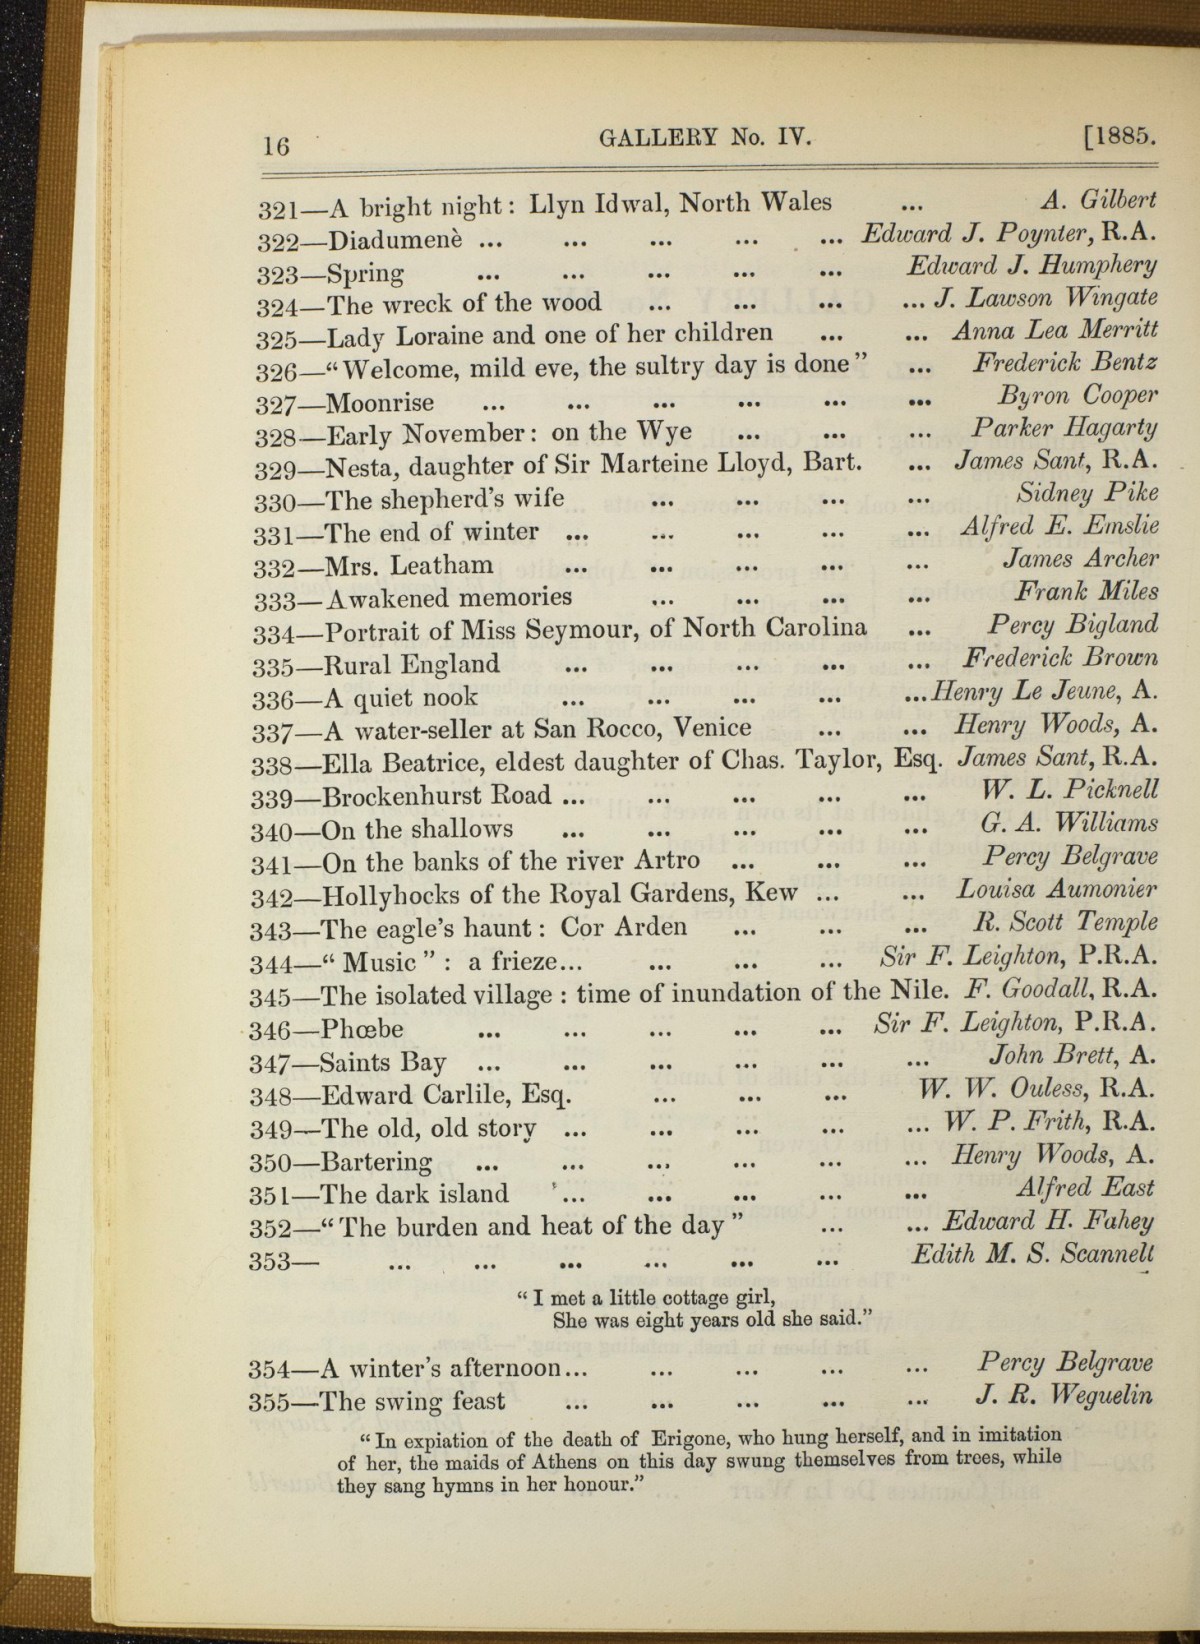 16 GALLERY No. IV. [1885.
321—A bright night: Llyn Idwal, North Wales ... A. Gilbert
322—Diadumenè ... ... ... ... ... Edward J. Poynter, R.A.
323—Spring ... ... ... ... ... Edward J. Humphery
324—The wreck of the wood ... ... ... ... J. Lawson Wingate
325—Lady Loraine and one of her children ... ... Anna Lea Merritt
326—“Welcome, mild eve, the sultry day is done” ... Frederick Bentz
327—Moonrise ... ... ... ... ... ... Byron Cooper
328—Early November: on the Wye ... ... ... Parker Hagarty
329—Nesta, daughter of Sir Marteine Lloyd, Bart. ... James Sant, R.A.
330—The shepherd’s wife ... ... ... ... Sidney Pike
331—The end of winter ... ... ... ... ... Alfred E. Emslie
332—Mrs. Leatham ... ... ... ... ... James Archer
333—Awakened memories ... ... ... ... Frank Miles
334—Portrait of Miss Seymour, of North Carolina ... Percy Bigland
335—Rural England ... ... ... ... ... Frederick Brown
336—A quiet nook ... ... ... ... ... Henry Le Jeune, A.
337—A water-seller at San Rocco, Venice ... ... Henry Woods, A.
338—Ella Beatrice, eldest daughter of Chas. Taylor, Esq. James Sant, R.A.
339—Brockenhurst Road ... ... ... ... ... W. L. Picknell
340—On the shallows ... ... ... ... ... G. A. Williams
341—On the banks of the river Artro ... ... ... Percy Belgrave
342—Hollyhocks of the Royal Gardens, Kew ... ... Louisa Aumonier
343—The eagle’s haunt: Cor Arden ... ... ... R. Scott Temple
344—“Music”: a frieze... ... ... ... Sir F. Leighton, P.R.A.
345—The isolated village: time of inundation of the Nile. F. Goodall, R.A.
346—Phœbe ... ... ... ... ... Sir F. Leighton, P.R.A.
347—Saints Bay ... ... ... ... ... ... John Brett, A.
348—Edward Carlile, Esq. ... ... ... W. W. Ouless, R.A.
349—The old, old story ... ... ... ... ... W. P. Frith, R.A.
350—Bartering ... ... ... ... ... ... Henry Woods, A.
351—The dark island ... ... ... ... ... Alfred East
352—“The burden and heat of the day” ... ... Edward H. Fahey
353— ... ... ... ... ... ... Edith M. S. Scannell
“I met a little cottage girl,
She was eight years old she said.”
354—A winter’s afternoon... ... ... ... ... Percy Belgrave
355—The swing feast ... ... ... ... ... J. R. Weguelin
“In expiation of the death of Erigone, who hung herself, and in imitation
of her, the maids of Athens on this day swung themselves from trees, while
they sang hymns in her honour.”